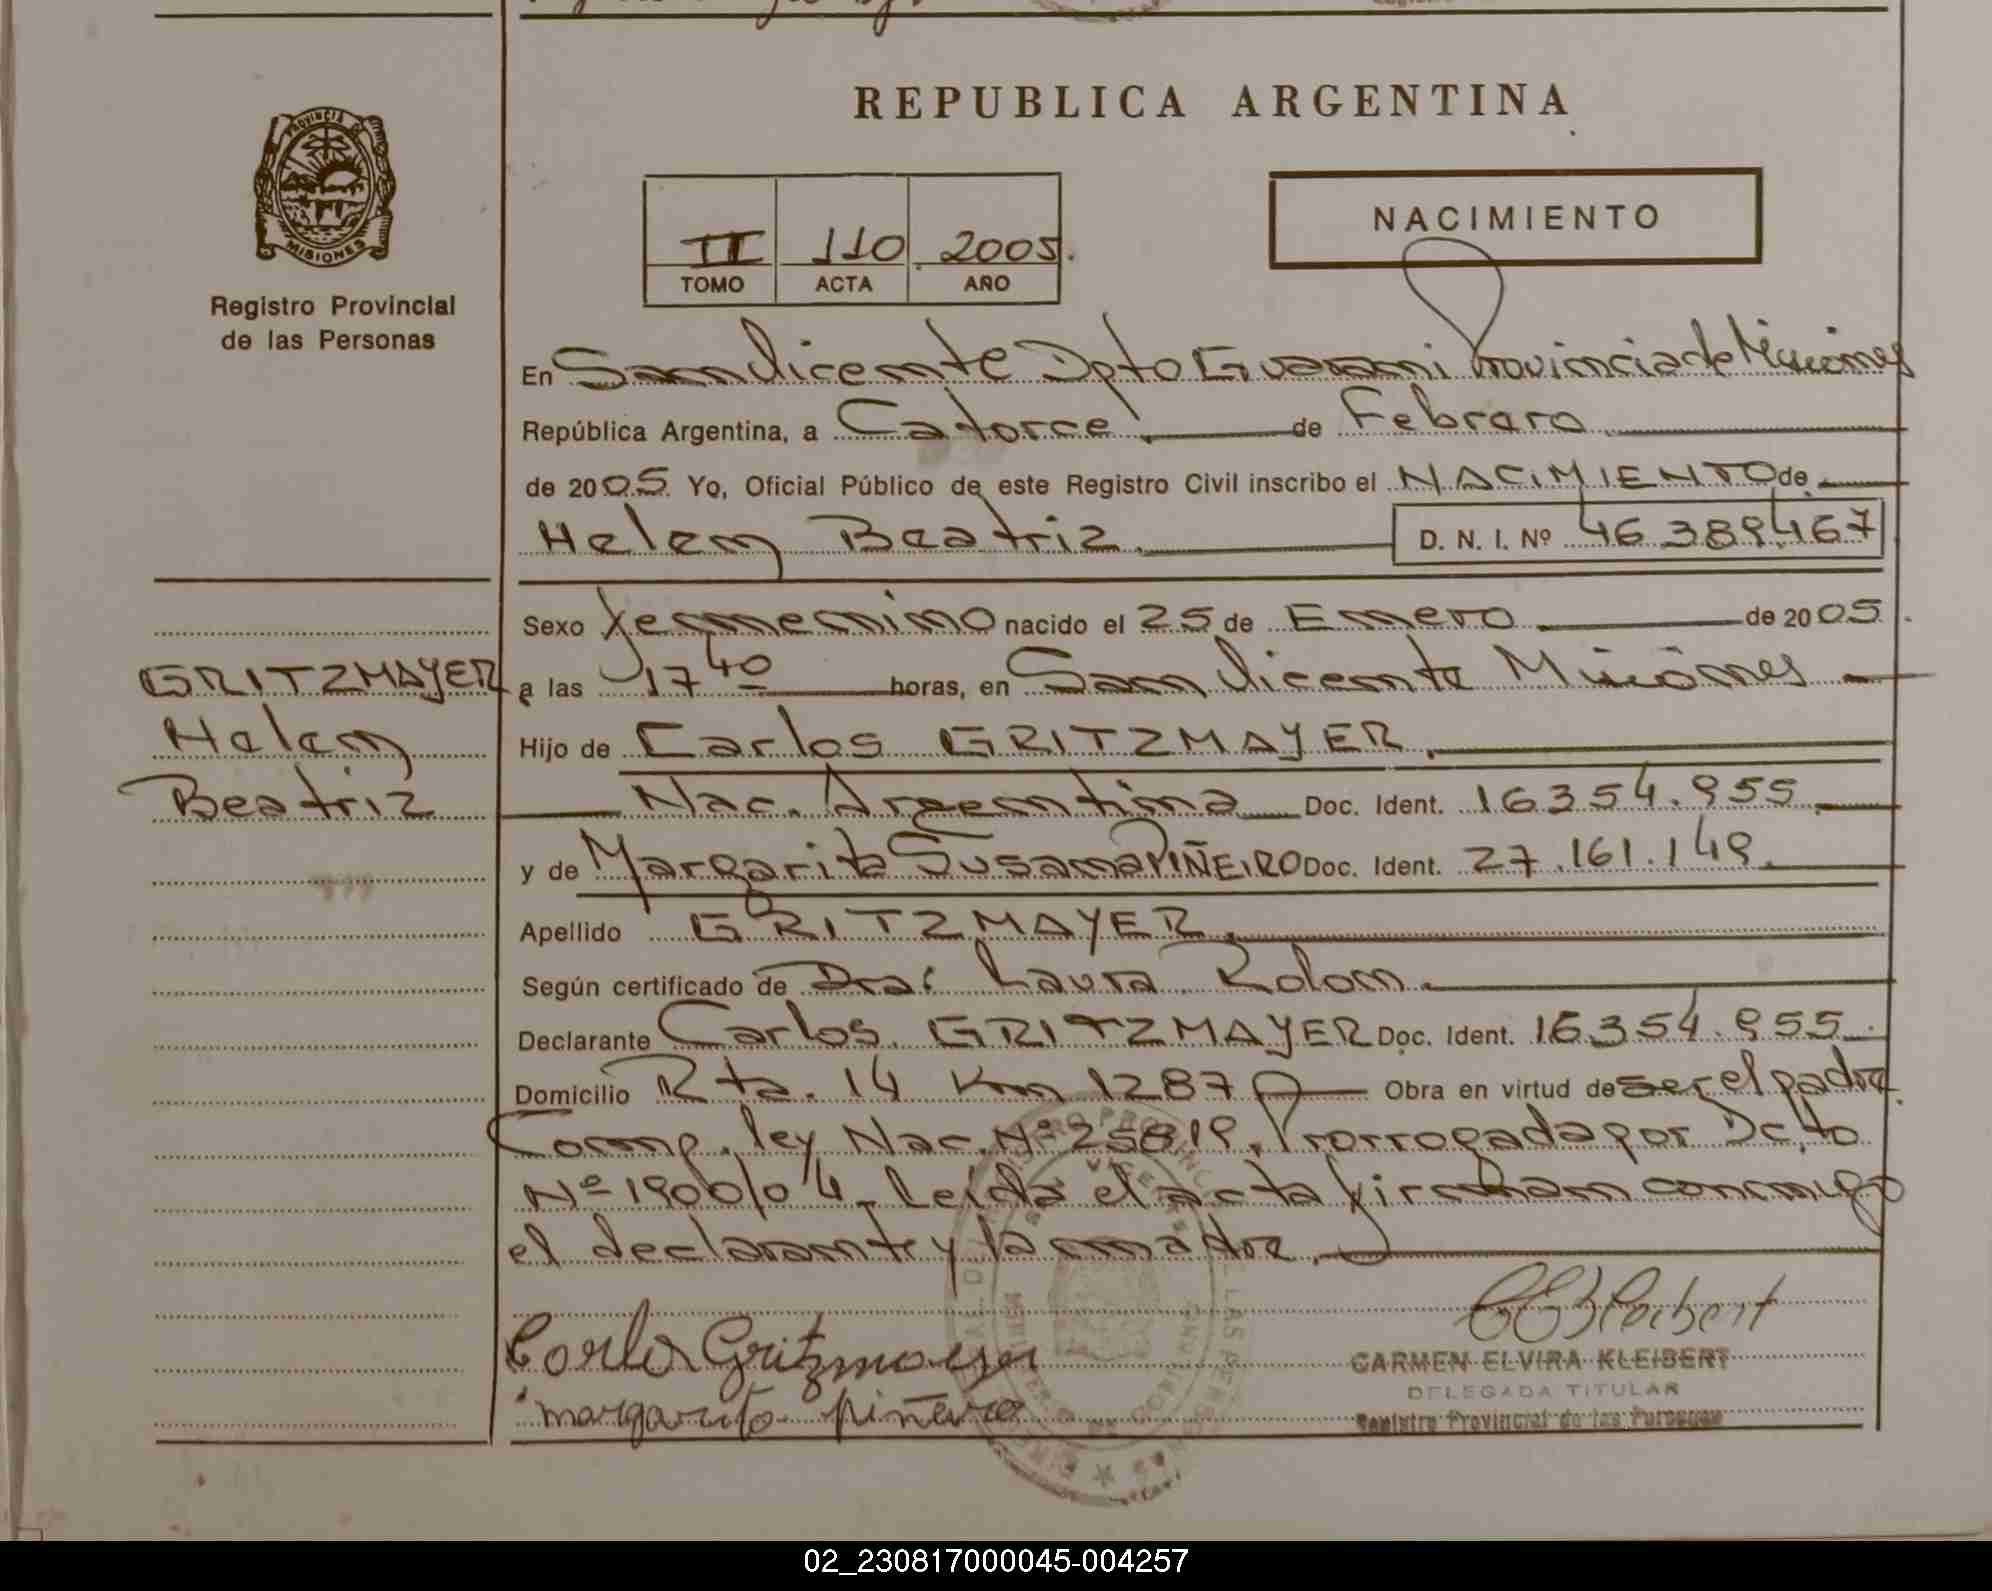 REPUBLICA ARGENTINA
PROVINCIA DE
MISIONES
Registro Provincial
de las Personas
II 110 2005.
TOMO ACTA AÑO
NACIMIENTO
En San Vicente Dpto Guarani Provincia de Misiones
República Argentina, a Catorce de Febrero
de 2005. Yo, Oficial Público de este Registro Civil inscribo el NACIMIENTO de
Helen Beatriz D. N. I. Nº 46.389.467
Sexo femenino nacido el 25 de Enero de 2005
a las 17 40 horas, en San Vicente Misiones
Hijo de Carlos GRITZMAYER.
Nac. Argentina Doc. Ident. 16354.955
y de Margarita Susana PIÑEIRO Doc. Ident. 27.161.149.
Apellido GRITZMAYER.
Según certificado de Dra: Laura Rolon.
Declarante Carlos GRITZMAYER Doc. Ident. 16354.955.
Domicilio Rta. 14 Km 1287 Obra en virtud de ser el padre.
Comp. ley Nac. Nº 25819. Prorrogada por Dcto
Nº 1900/04 Leida el acta firman conmigo
el declarante y la madre.
GRITZMAYER
Helen
Beatriz
Carlos Gritzmayer
margarita piñeiro
CARMEN ELVIRA KLEIBERT
DELEGADA TITULAR
Registro Provincial de las Personas
02_230817000045-004257